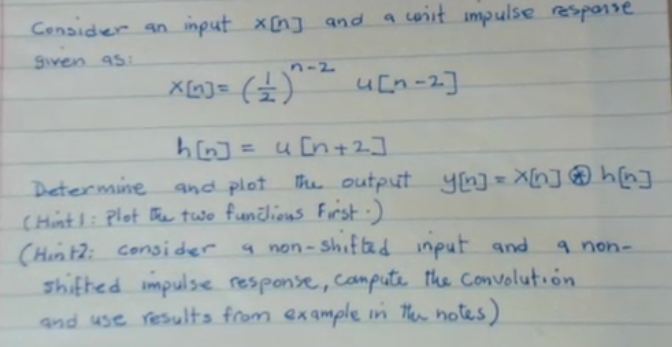 Consider an input x[n] and a unit impulse response
given as:
x[n] = (1/2)^(n-2) u[n-2]
h[n] = u[n+2]
Determine and plot the output y[n] = x[n] ⊛ h[n]
(Hint1: Plot the two functions first.)
(Hint2: consider a non-shifted input and a non-
shifted impulse response, compute the convolution
and use results from example in the notes)